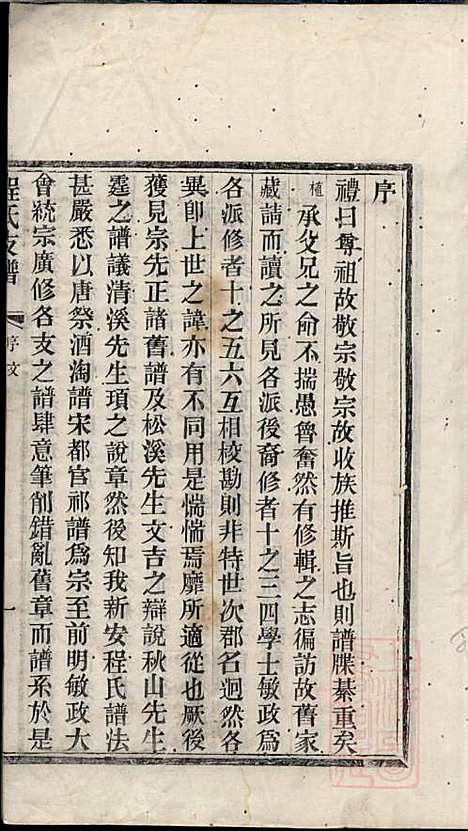 序
禮曰尊祖故敬宗敬宗故收族推斯旨也則譜牒綦重矣
植承父兄之命不揣愚魯奮然有修輯之志徧訪故舊家
藏請而讀之所見各派後裔修者十之三四學士敏政為
各派修者十之五六互相稜勘則非特世次郡名迥然各
異卽上世之諱亦有不同用是惴惴焉靡所適從也厥後
獲見宗先正諸舊譜及松溪先生文吉之辯說秋山先生
霆之譜議清溪先生瑣之說章然後知我新安程氏譜法
甚嚴悉以唐祭酒淘譜宋都官祁譜為宗至前明敏政大
會統宗廣修各支之譜肆意筆削錯亂舊章而譜系於是
程氏支譜
序文
一